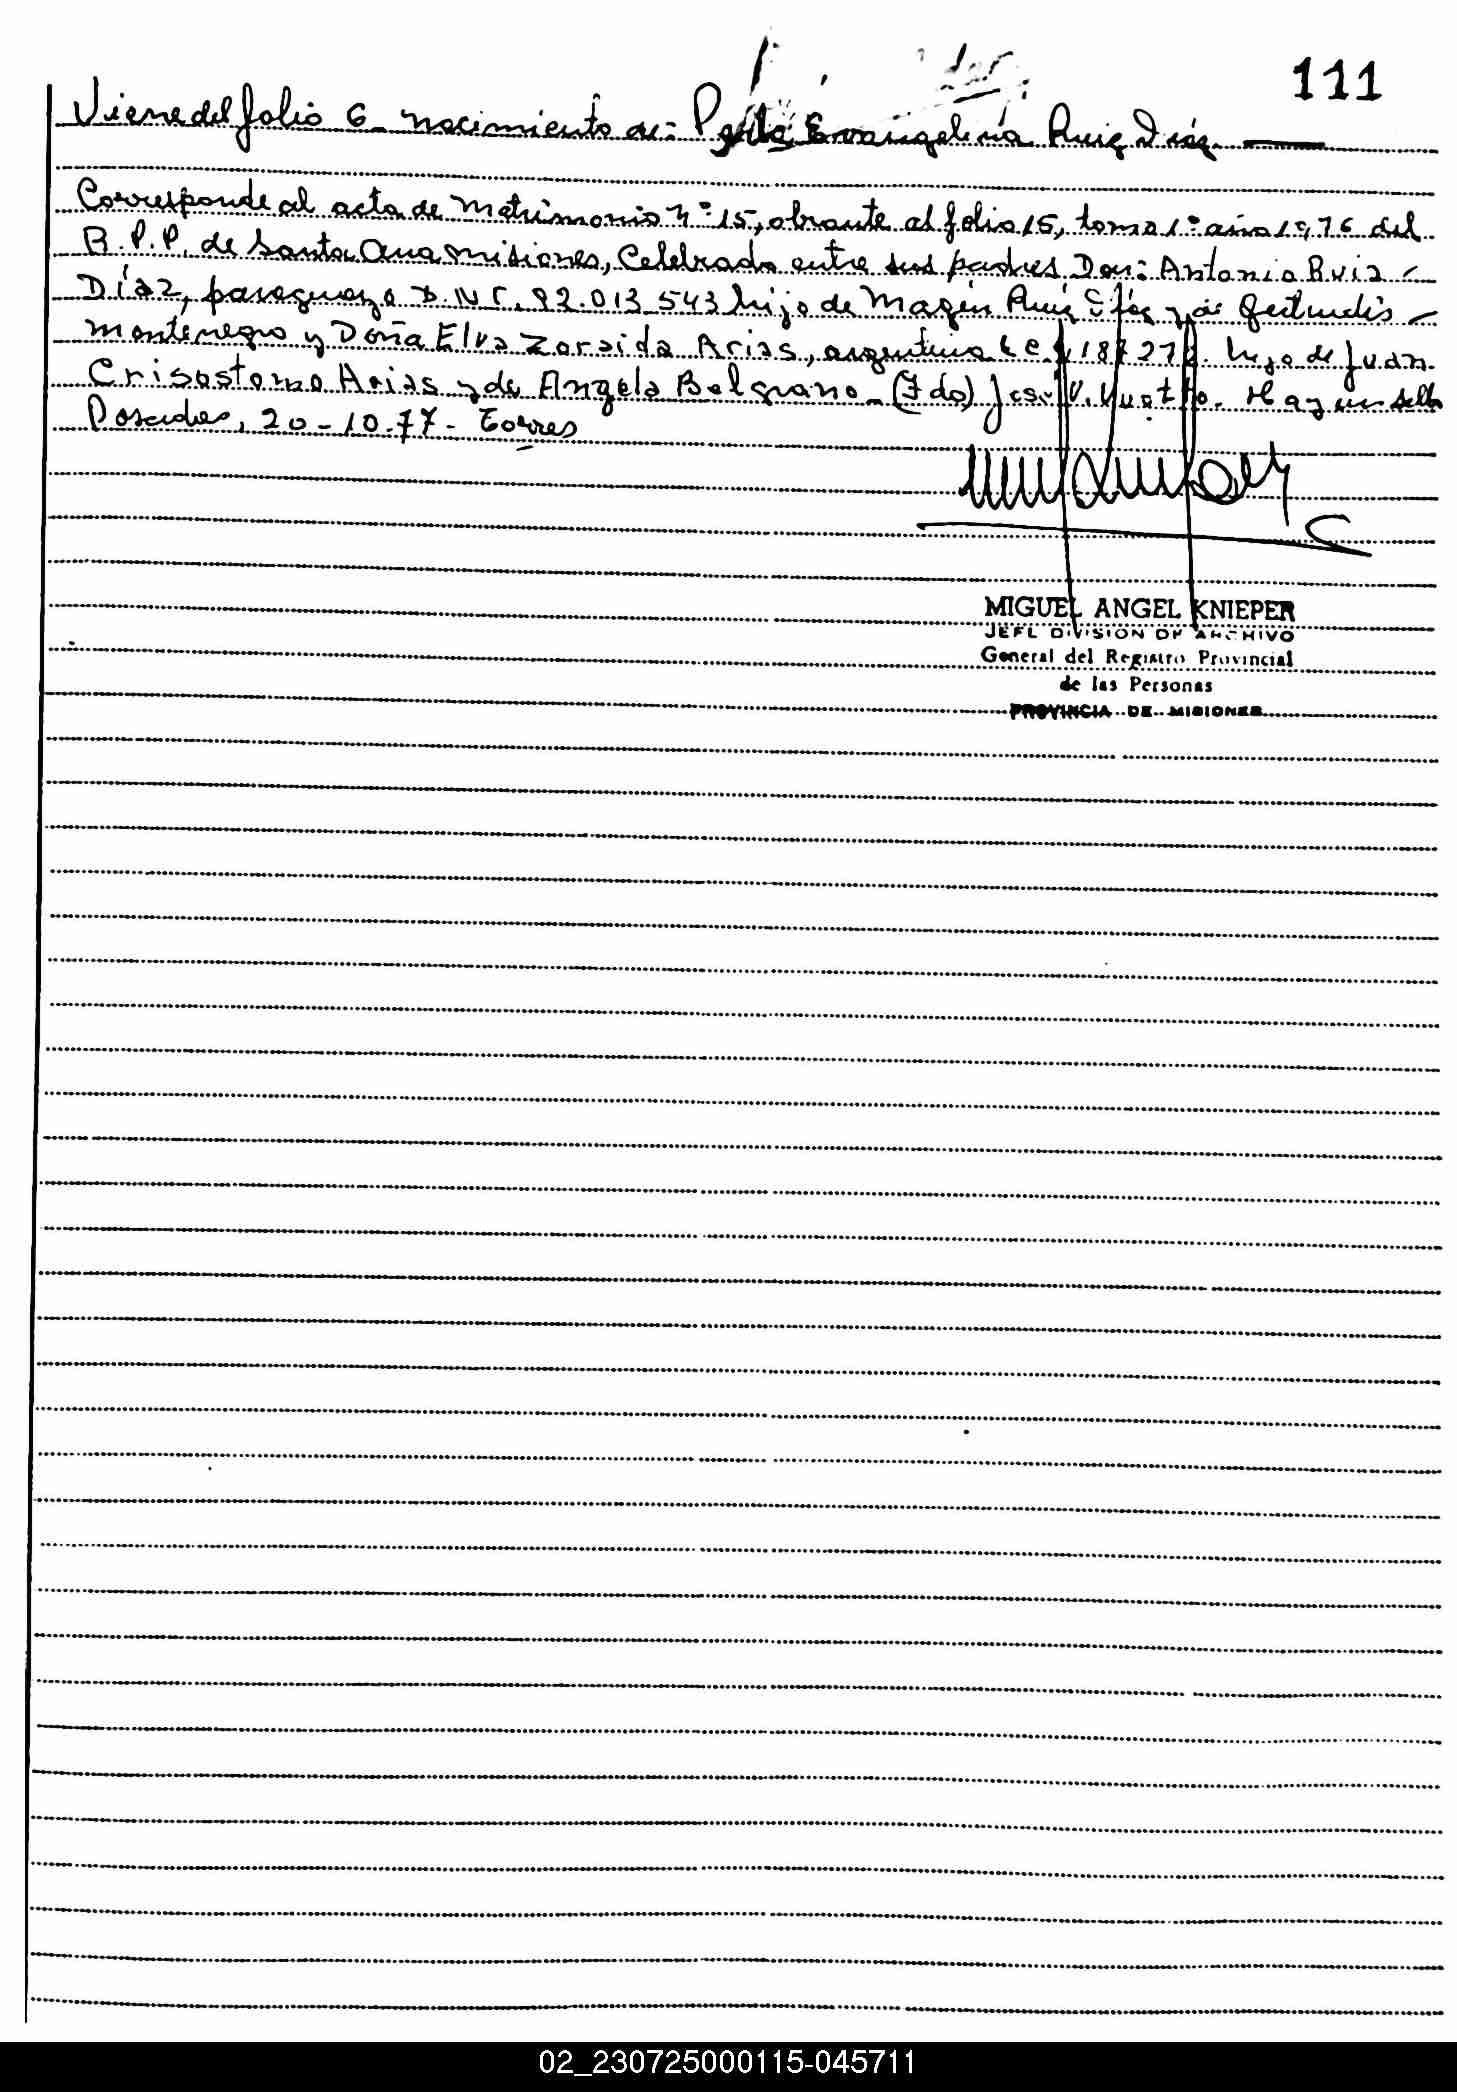 111
Viene del folio 6_ Nacimiento de: Perla Evangelina Ruiz Diaz.
Corresponde al acta de Matrimonio Nº 15, obrante al folio 15, tomo 1º año 1976 del
R.P.P. de Santa Ana Misiones, Celebrado entre sus padres Don: Antonio Ruiz
Díaz, paraguayo D.N.I. 92.013.543 hijo de Magín Ruiz Díaz y de Gertrudis
Montenegro y Doña Elva Zoraida Arias, argentina hija de Juan
Crisostomo Arias y de Angela Belgrano_ (Fdo) José V. Hay un sello
Posadas, 20-10-77- Torres
MIGUEL ANGEL KNIEPER
JEFE DIVISION DE ARCHIVO
General del Registro Provincial
de las Personas
PROVINCIA DE MISIONES
02_230725000115-045711